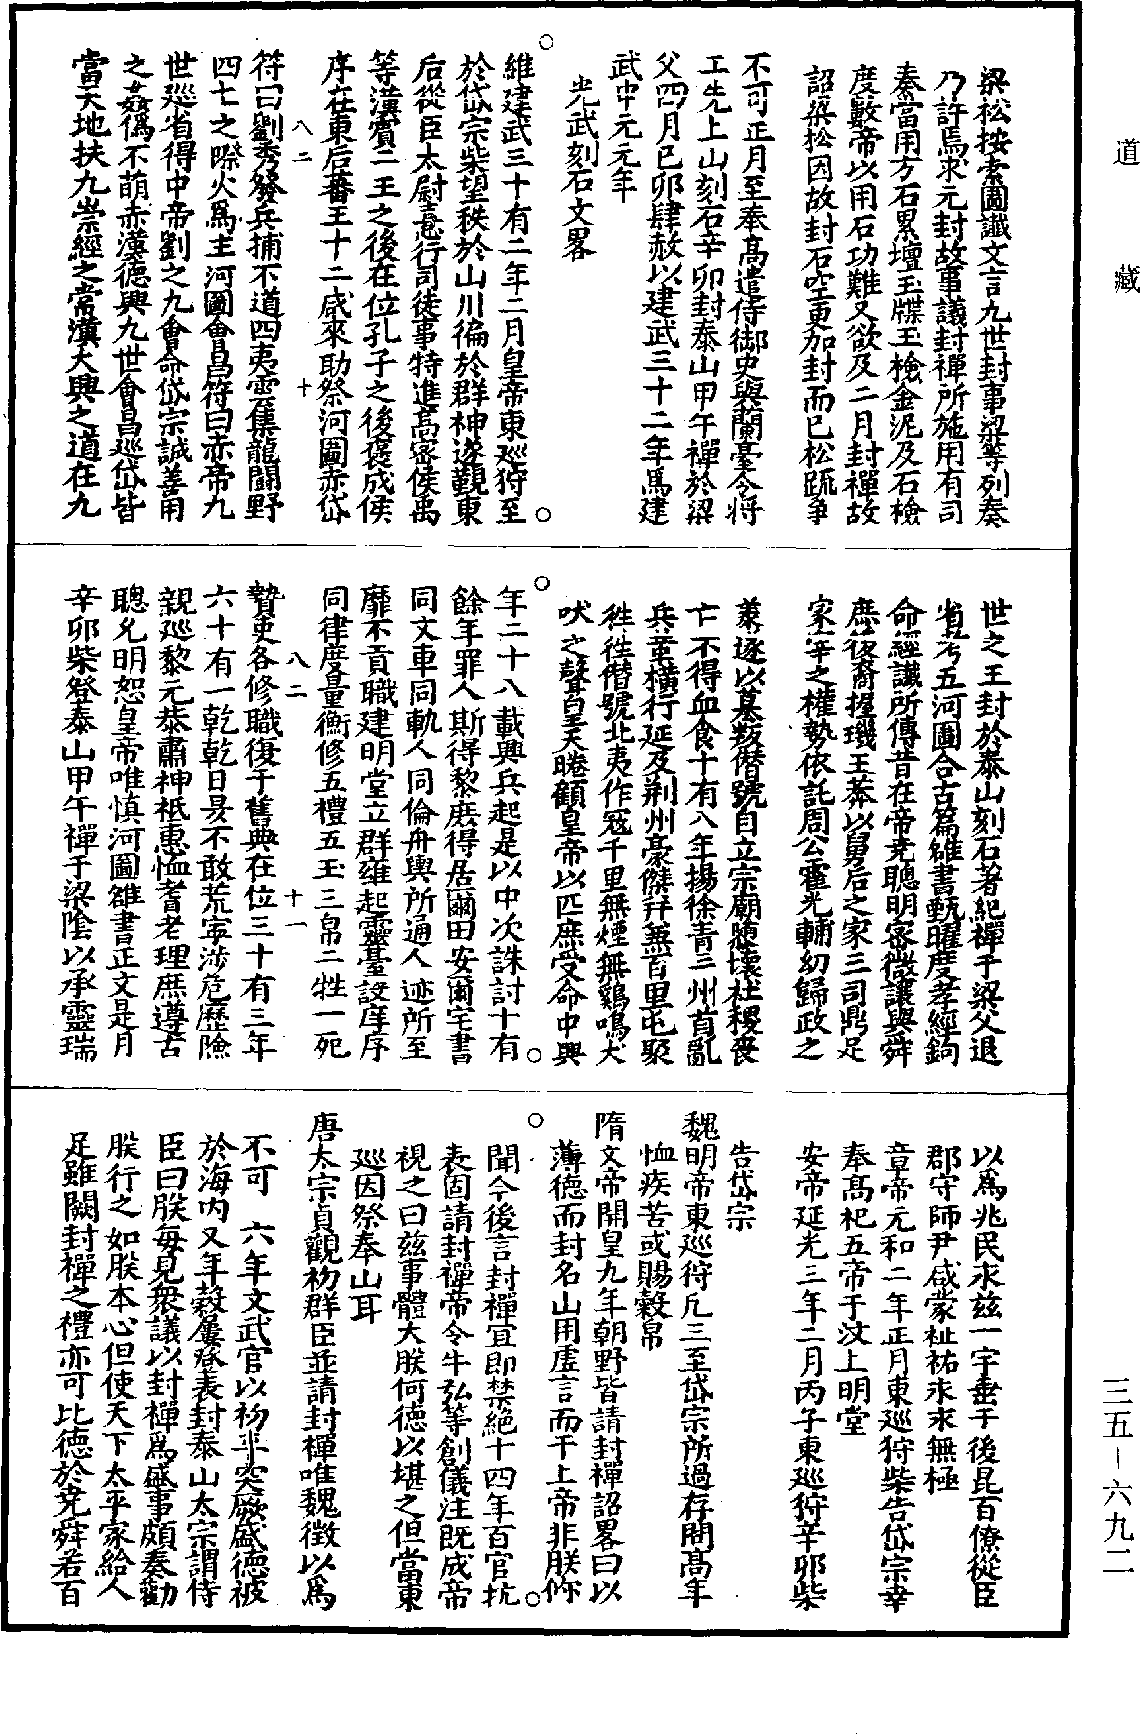 道藏
三五—六九二
梁松按索圖讖文言九世封事梁等列奏
乃許焉求元封故事議封禪所施用有司
奏當用方石累壇玉牒玉檢金泥及石檢
度數帝以用石功難又欲及二月封禪故
詔梁松因故封石空更加封而已松疏爭
不可正月至奉高遣侍御史與蘭臺令將
工先上山刻石辛卯封泰山甲午禪於梁
父四月己卯肆赦以建武三十二年爲建
武中元元年
光武刻石文畧
維建武三十有二年二月皇帝東巡狩至
於岱宗柴望秩於山川徧於群神遂覲東
后從臣太尉憙行司徒事特進高密侯禹
等漢賓二王之後在位孔子之後褒成侯
序在東后蕃王十二咸來助祭河圖赤岱
八二 十
符曰劉秀發兵捕不道四夷雲集龍鬬野
四七之際火爲主河圖會昌符曰赤帝九
世巡省得中帝劉之九會命岱宗誠善用
之姦僞不萌赤漢德興九世會昌巡岱皆
當天地扶九崇經之常漢大興之道在九
世之王封於泰山刻石著紀禪于梁父退
省考五河圖合古篇雒書甄曜度孝經鉤
命經讖所傳昔在帝堯聰明密微讓與舜
庶後裔握璣王莽以舅后之家三司鼎足
冢宰之權勢依託周公霍光輔幼歸政之
義遂以篡叛僭號自立宗廟隳壞社稷喪
亡不得血食十有八年揚徐青三州首亂
兵革橫行延及荆州豪傑并兼百里屯聚
徃徃僭號北夷作冦千里無煙無鷄鳴犬
吠之聲皇天睠顧皇帝以匹庶受命中興
年二十八載興兵起是以中次誅討十有
餘年罪人斯得黎庶得居爾田安爾宅書
同文車同軌人同倫舟輿所通人迹所至
靡不貢職建明堂立群雍起靈臺設庠序
同律度量衡修五禮五玉三帛二牲一死
八二 十一
贄吏各修職復于舊典在位三十有三年
六十有一乾乾日昃不敢荒寧涉危歷險
親巡黎元恭肅神祗惠恤耆老理庶遵古
聰允明恕皇帝唯慎河圖雒書正文是月
辛卯柴登泰山甲午禪于梁陰以承靈瑞
以爲兆民永兹一宇垂于後昆百僚從臣
郡守師尹咸蒙祉祐永永無極
章帝元和二年正月東巡狩柴告岱宗幸
奉高祀五帝于汶上明堂
安帝延光三年二月丙子東巡狩辛卯柴
告岱宗
魏明帝東巡狩凡三至岱宗所過存問高年
恤疾苦或賜穀帛
隋文帝開皇九年朝野皆請封禪詔畧曰以
薄德而封名山用虚言而干上帝非朕攸
聞今後言封禪宜即禁絶十四年百官抗
表固請封禪帝令牛弘等創儀注既成帝
視之曰兹事體大朕何德以堪之但當東
巡因祭奉山耳
唐太宗貞觀初群臣並請封禪唯魏徵以爲
不可 六年文武官以初平突厥盛德被
於海内又年穀屢豋表封泰山太宗謂侍
臣曰朕每見衆議以封禪爲盛事頗奏勸
朕行之如朕本心但使天下太平家給人
足雖闕封禪之禮亦可比德於堯舜若百